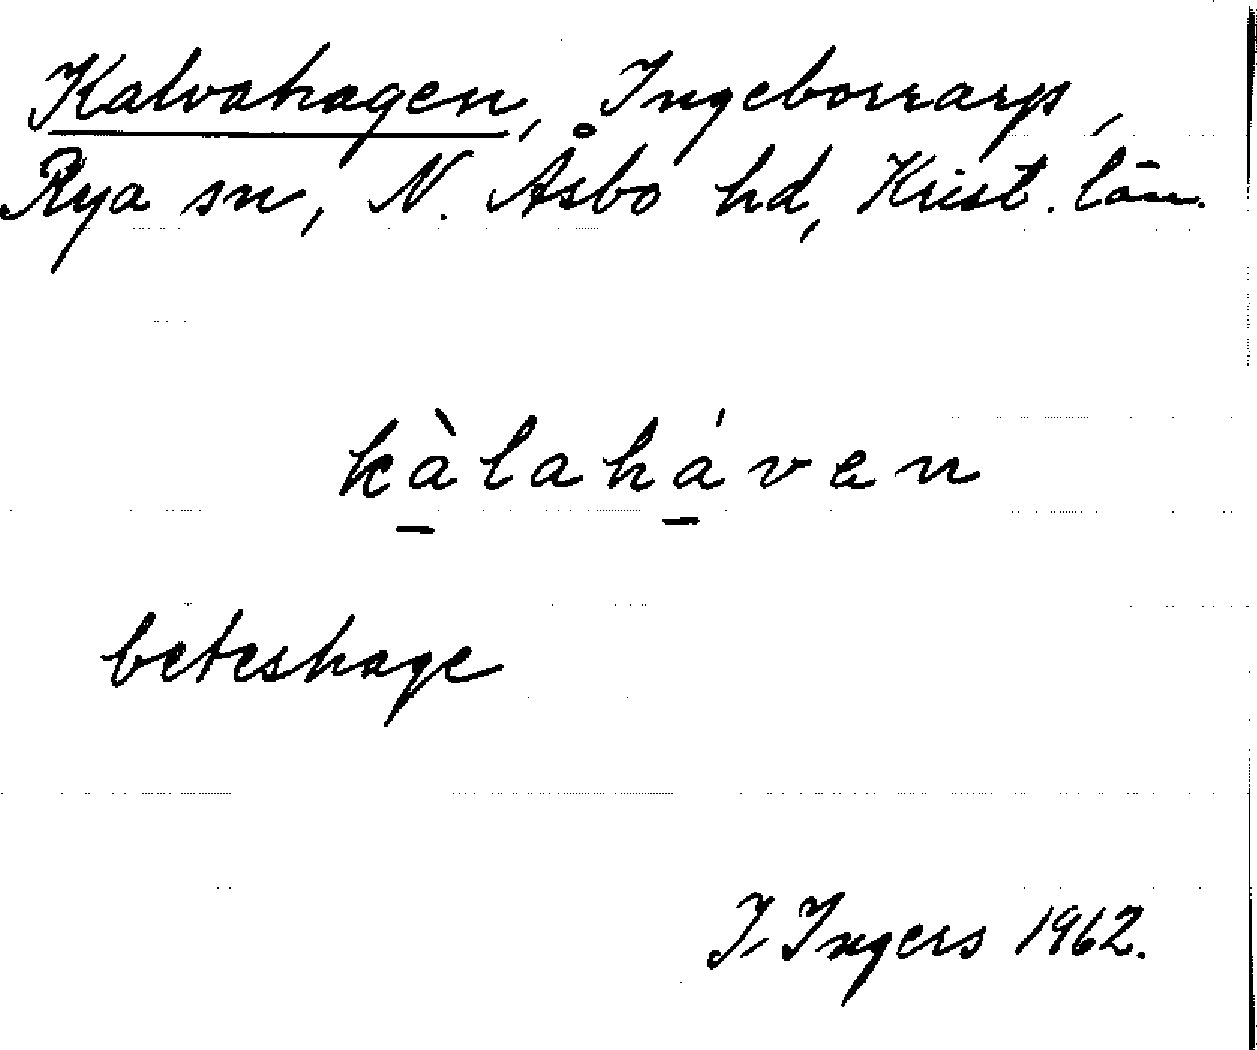 Kalvahagen, Ingeborrarp,
Rya sn, N. Åsbo hd, Krist. län.
kà̱lahá̱ven
beteshage
I. Ingers 1962.